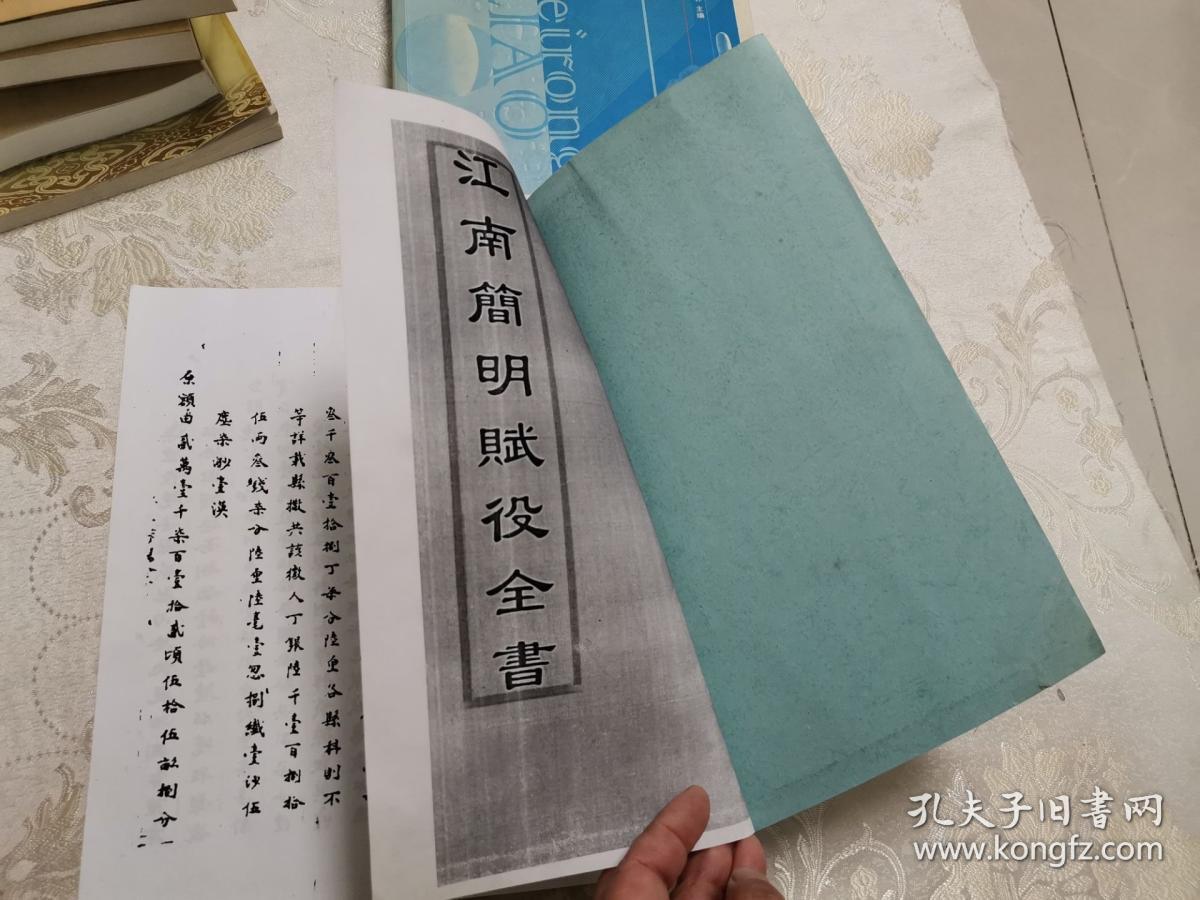 主编
eurong
IAO
江南簡明賦役全書
叁千叁百壹拾捌丁柒分陸重各縣科則不
等詳載縣撒共該徵人丁銀陸千壹百捌拾
伍兩叁錢柒分陸重陸毫壹忽捌纖壹沙伍
塵柒渺壹漠
原額田貳萬壹千柒百壹拾貳頃伍拾伍畝捌分
孔夫子旧书网
www.kongfz.com